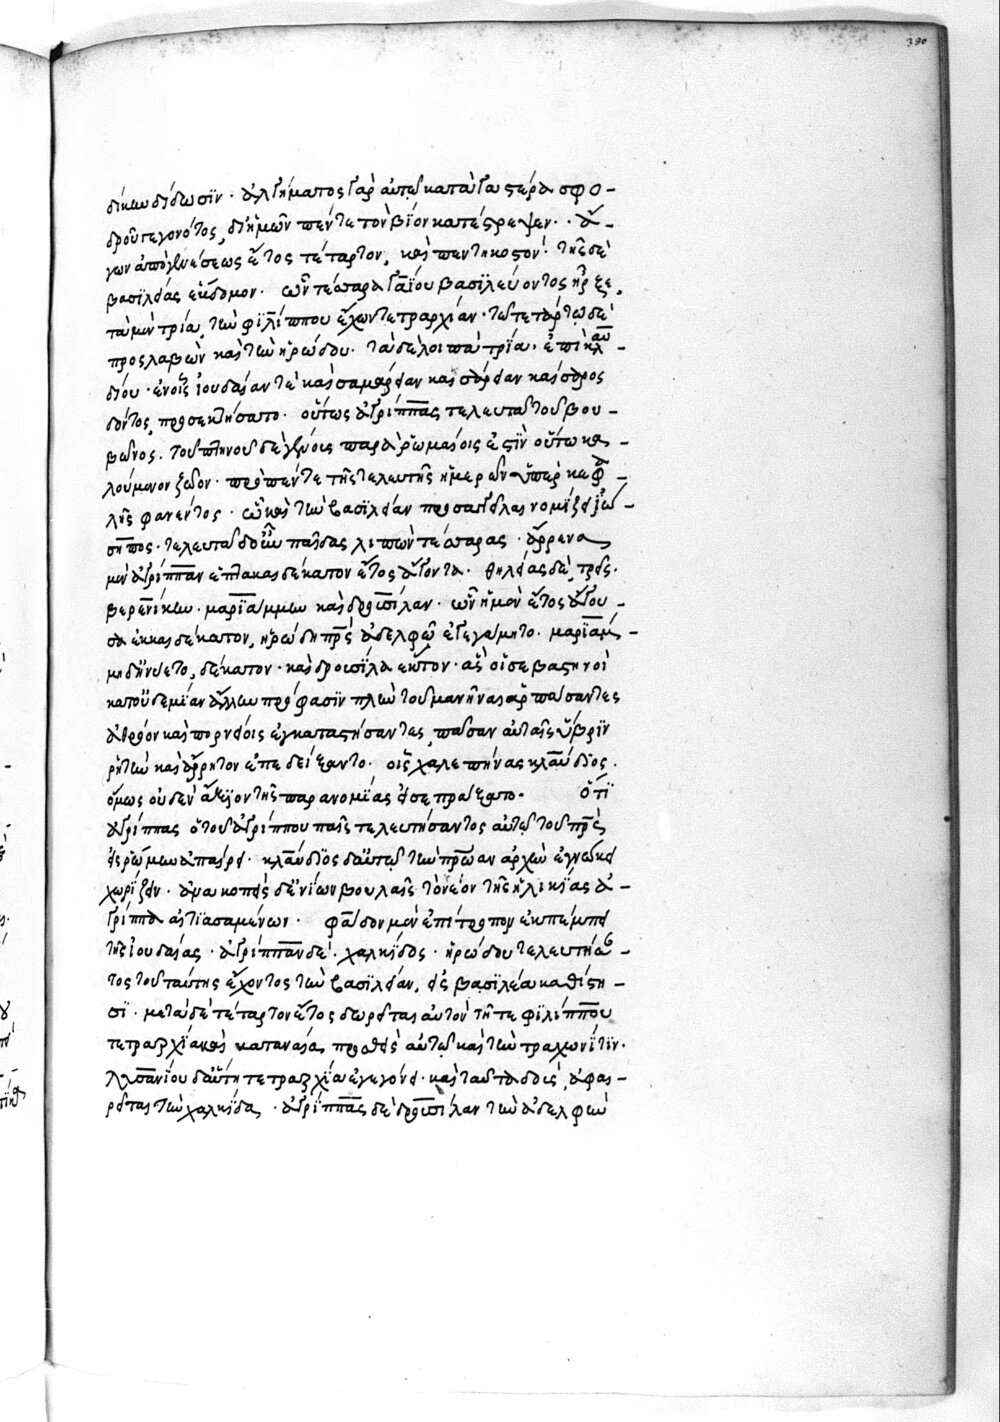 380
δίκην δίδωσϊν · ἀλγήματος γὰρ αὐτῷ κατὰ γαστέρα σφο -
δροῦ γεγονότος, δι᾽ ἡμῶν πέντε τὸν βϊον κατέστρεψεν · ἄ -
γων ἀπὸ γενέσεως ἔτος τέταρτον, καὶ πεντηκοστόν · τῆς δὲ
βασϊλείας ἕβδομον · ὧν τέσσαρα γαΐου βασϊλεύοντος ἦρξε,
τὰ μὲν τρία, τὴν φϊλίππου ἔχων τετραρχίαν · τῷ τετάρτῳ δὲ
προσλαβὼν καὶ τὴν ἡρώδου · τὰ δὲ λοιπὰ τρΐα · ἐπὶ κλαυ -
δίου · ἐν οἷς ἰουδαίαν τὲ καὶ σαμάρειαν καὶ καισάρειαν
δόντος, προσεκτήσατο · οὕτως ἀγρίππας τελευτᾷ τοῦ βου -
βῶνος · τοῦ πτηνοῦ δὲ γένους παρὰ ῥωμαίοις ἐστϊν οὕτω κα -
λούμενον ζῶον · πρὸ πέντε τῆς τελευτῆς ἡμερῶν ὑπὲρ κεφα -
λῆς φανέντος · ὧ καὶ τὴν βασϊλείαν προσαγγεῖλαι νομίζει ἰώ -
σηπος · τελευτᾷ δ᾽ οὖν παῖδας λιπὼν τέσσαρας · ἄρρενα
μὲν ἀγρίππαν ἑπτακαιδέκατον ἔτος ἄγοντα · θηλείας δὲ, τρεῖς ·
βερενίκην · μαρϊάμμην καὶ δρουσίλαν · ὧν ἡ μὲν ἔτος ἄγου -
σα ἑκκαιδέκατον, ἡρώδη πρὸς ἀδελφῷ ἐγεγάμητο · μαριάμ -
μη δ᾽ ἤνυε τὸ, δέκατον · καὶ δρουσίλα ἕκτον · ἃς οἱ σεβαστηνοὶ
κατ᾽ οὐδεμίαν ἄλλην πρόφασϊν πλὴν τοῦ μανῆναι ἁρπάσαντες
ἀθρόον καὶ πορνείοις ἐγκαταστήσαντες, πᾶσαν αὐταῖς ὕβρϊν
ῥητὴν καὶ ἄρρητον ἐπεδείξαντο · οἷς χαλεπήνας κλαύδϊος ·
ὅμως οὐδὲν ἄξϊον τῆς παρανομίας εἰσεπράξατο · ὅτϊ
ἀγρίππας ὁ τοῦ ἀγρίππου παῖς τελευτήσαντος αὐτῷ τοῦ πατρὸς
εἰς ῥώμην ἀπαίρει · κλαύδϊος δ᾽ αὐτῷ τὴν πρῴαν ἀρχὴν ἐγνώκει
χωρϊζειν · ἀνακοπεὶς δ᾽ ἐνίων βουλαῖς τὸ νέον τῆς ἡλικϊας ἀ -
γρίππα αἰτϊασαμένων · φᾶδον μὲν ἐπίτροπον ἐκπέμπει
τῆς ἰουδαίας · ἀγρίππαν δὲ · χαλκίδος · ἡρώδου τελευτήσαν -
τος τοῦ ταύτης ἔχοντος τὴν βασϊλείαν, εἰς βασϊλέα καθίστη -
σϊ · μετὰ δὲ τέταρτον ἔτος δωρεῖται αὐτὸν τῇ τε φϊλίππου
τετραρχίᾳ καὶ καταναίᾳ προσθεὶς αὐτῷ καὶ τὴν τραχωνῖτϊν ·
λυσανίου δ᾽ αὕτη τετραρχία ἐγεγόνει · καὶ ταῦτα δοὺς, ἀφαι -
ρεῖται τὴν χαλκίδα · ἀγρίππας δὲ δρουσίλαν τὴν ἀδελφὴν